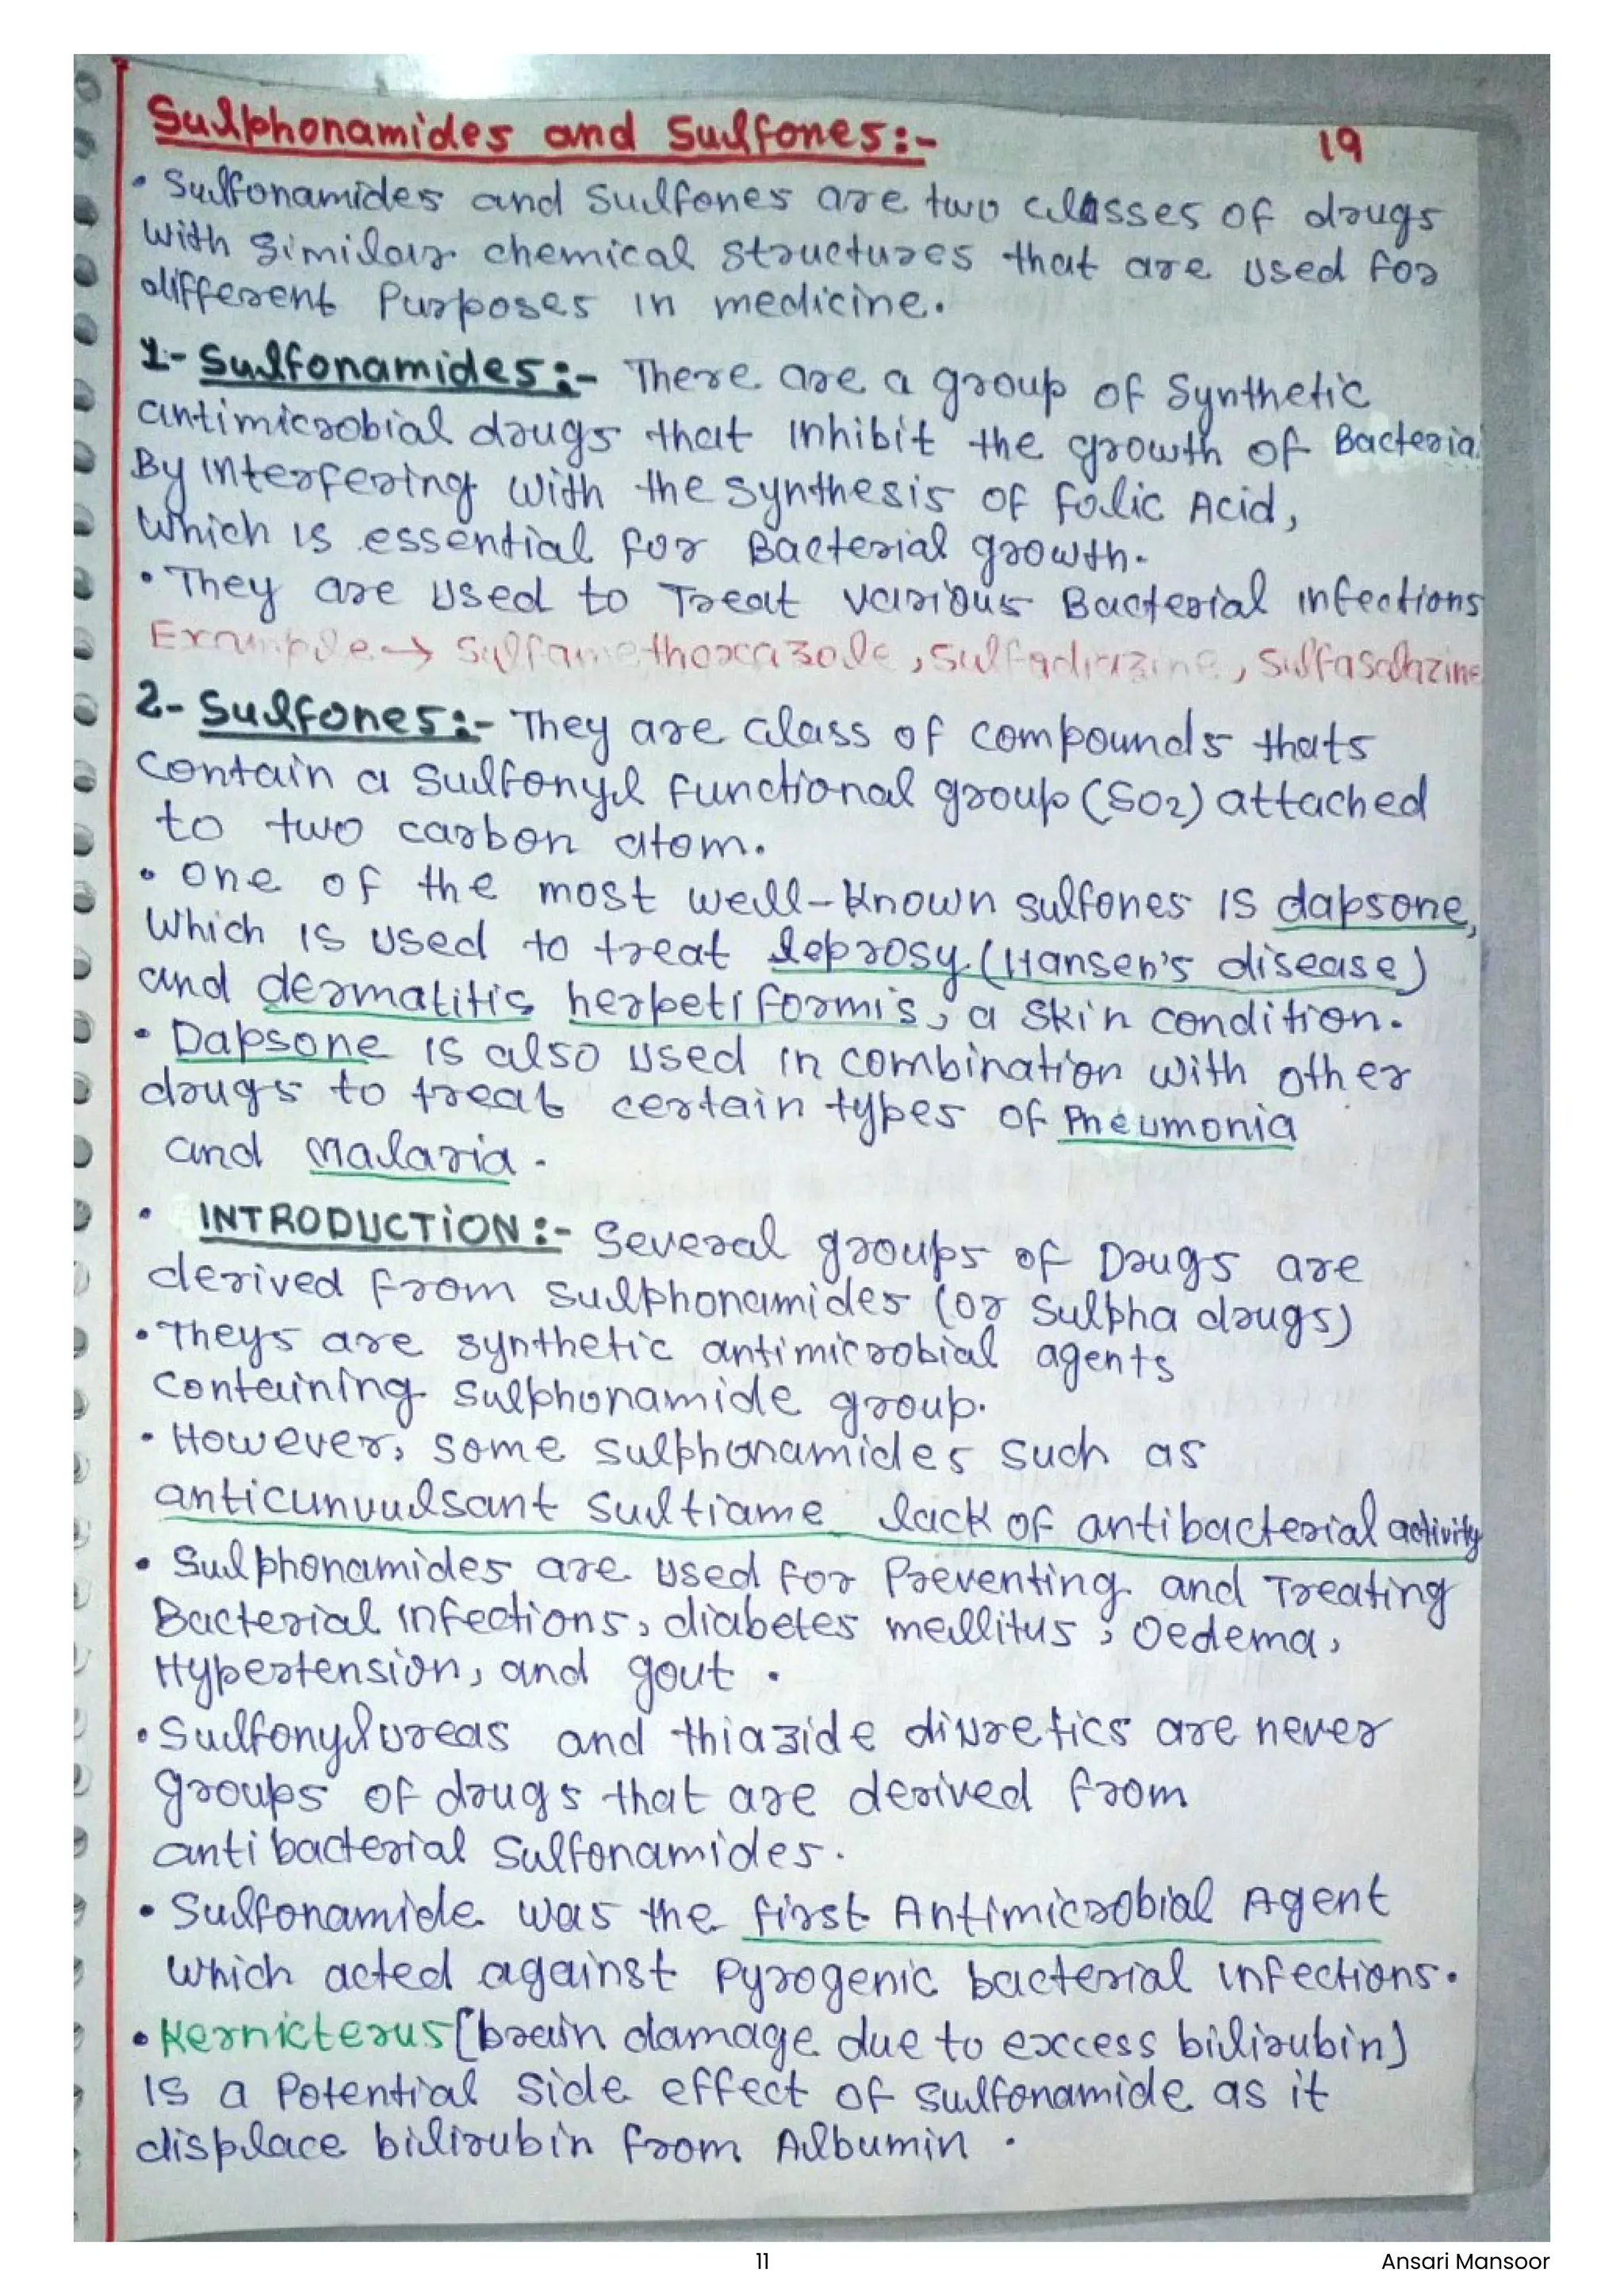 Sulphonamides and Sulfones:-
19
• Sulfonamides and Sulfones are two classes of drugs
with similar chemical structures that are used for
different Purposes in medicine.
1- Sulfonamides:- There are a group of Synthetic
antimicrobial drugs that inhibit the growth of Bacteria.
By interfering with the synthesis of folic Acid,
Which is essential for Bacterial growth.
• They are used to Treat various Bacterial infections
Example → Sulfamethoxazole, Sulfadiazine, Sulfasalazine
2- Sulfones:- They are class of compounds thats
contain a Sulfonyl functional group (SO2) attached
to two carbon atom.
• One of the most well-known sulfones is dapsone,
Which is used to treat leprosy (Hansen's disease)
and dermatitis herpetiformis, a skin condition.
• Dapsone is also used in combination with other
drugs to treat certain types of Pneumonia
and malaria.
• INTRODUCTION:- Several groups of Drugs are
derived from sulphonamides (or Sulpha drugs)
• Theys are synthetic antimicrobial agents
Containing sulphonamide group.
• However, some sulphonamides such as
anticunvulsant sultiame lack of antibacterial activity
• Sulphonamides are used for Preventing and Treating
Bacterial infections, diabetes mellitus, Oedema,
Hypertension, and gout.
• Sulfonylureas and thiazide diuretics are never
groups of drugs that are derived from
antibacterial Sulfonamides.
• Sulfonamide was the first Antimicrobial Agent
which acted against Pyrogenic bacterial infections.
• Kernicterus [brain damage due to excess bilirubin]
is a Potential side effect of sulfonamide as it
displace bilirubin from Albumin.
11
Ansari Mansoor